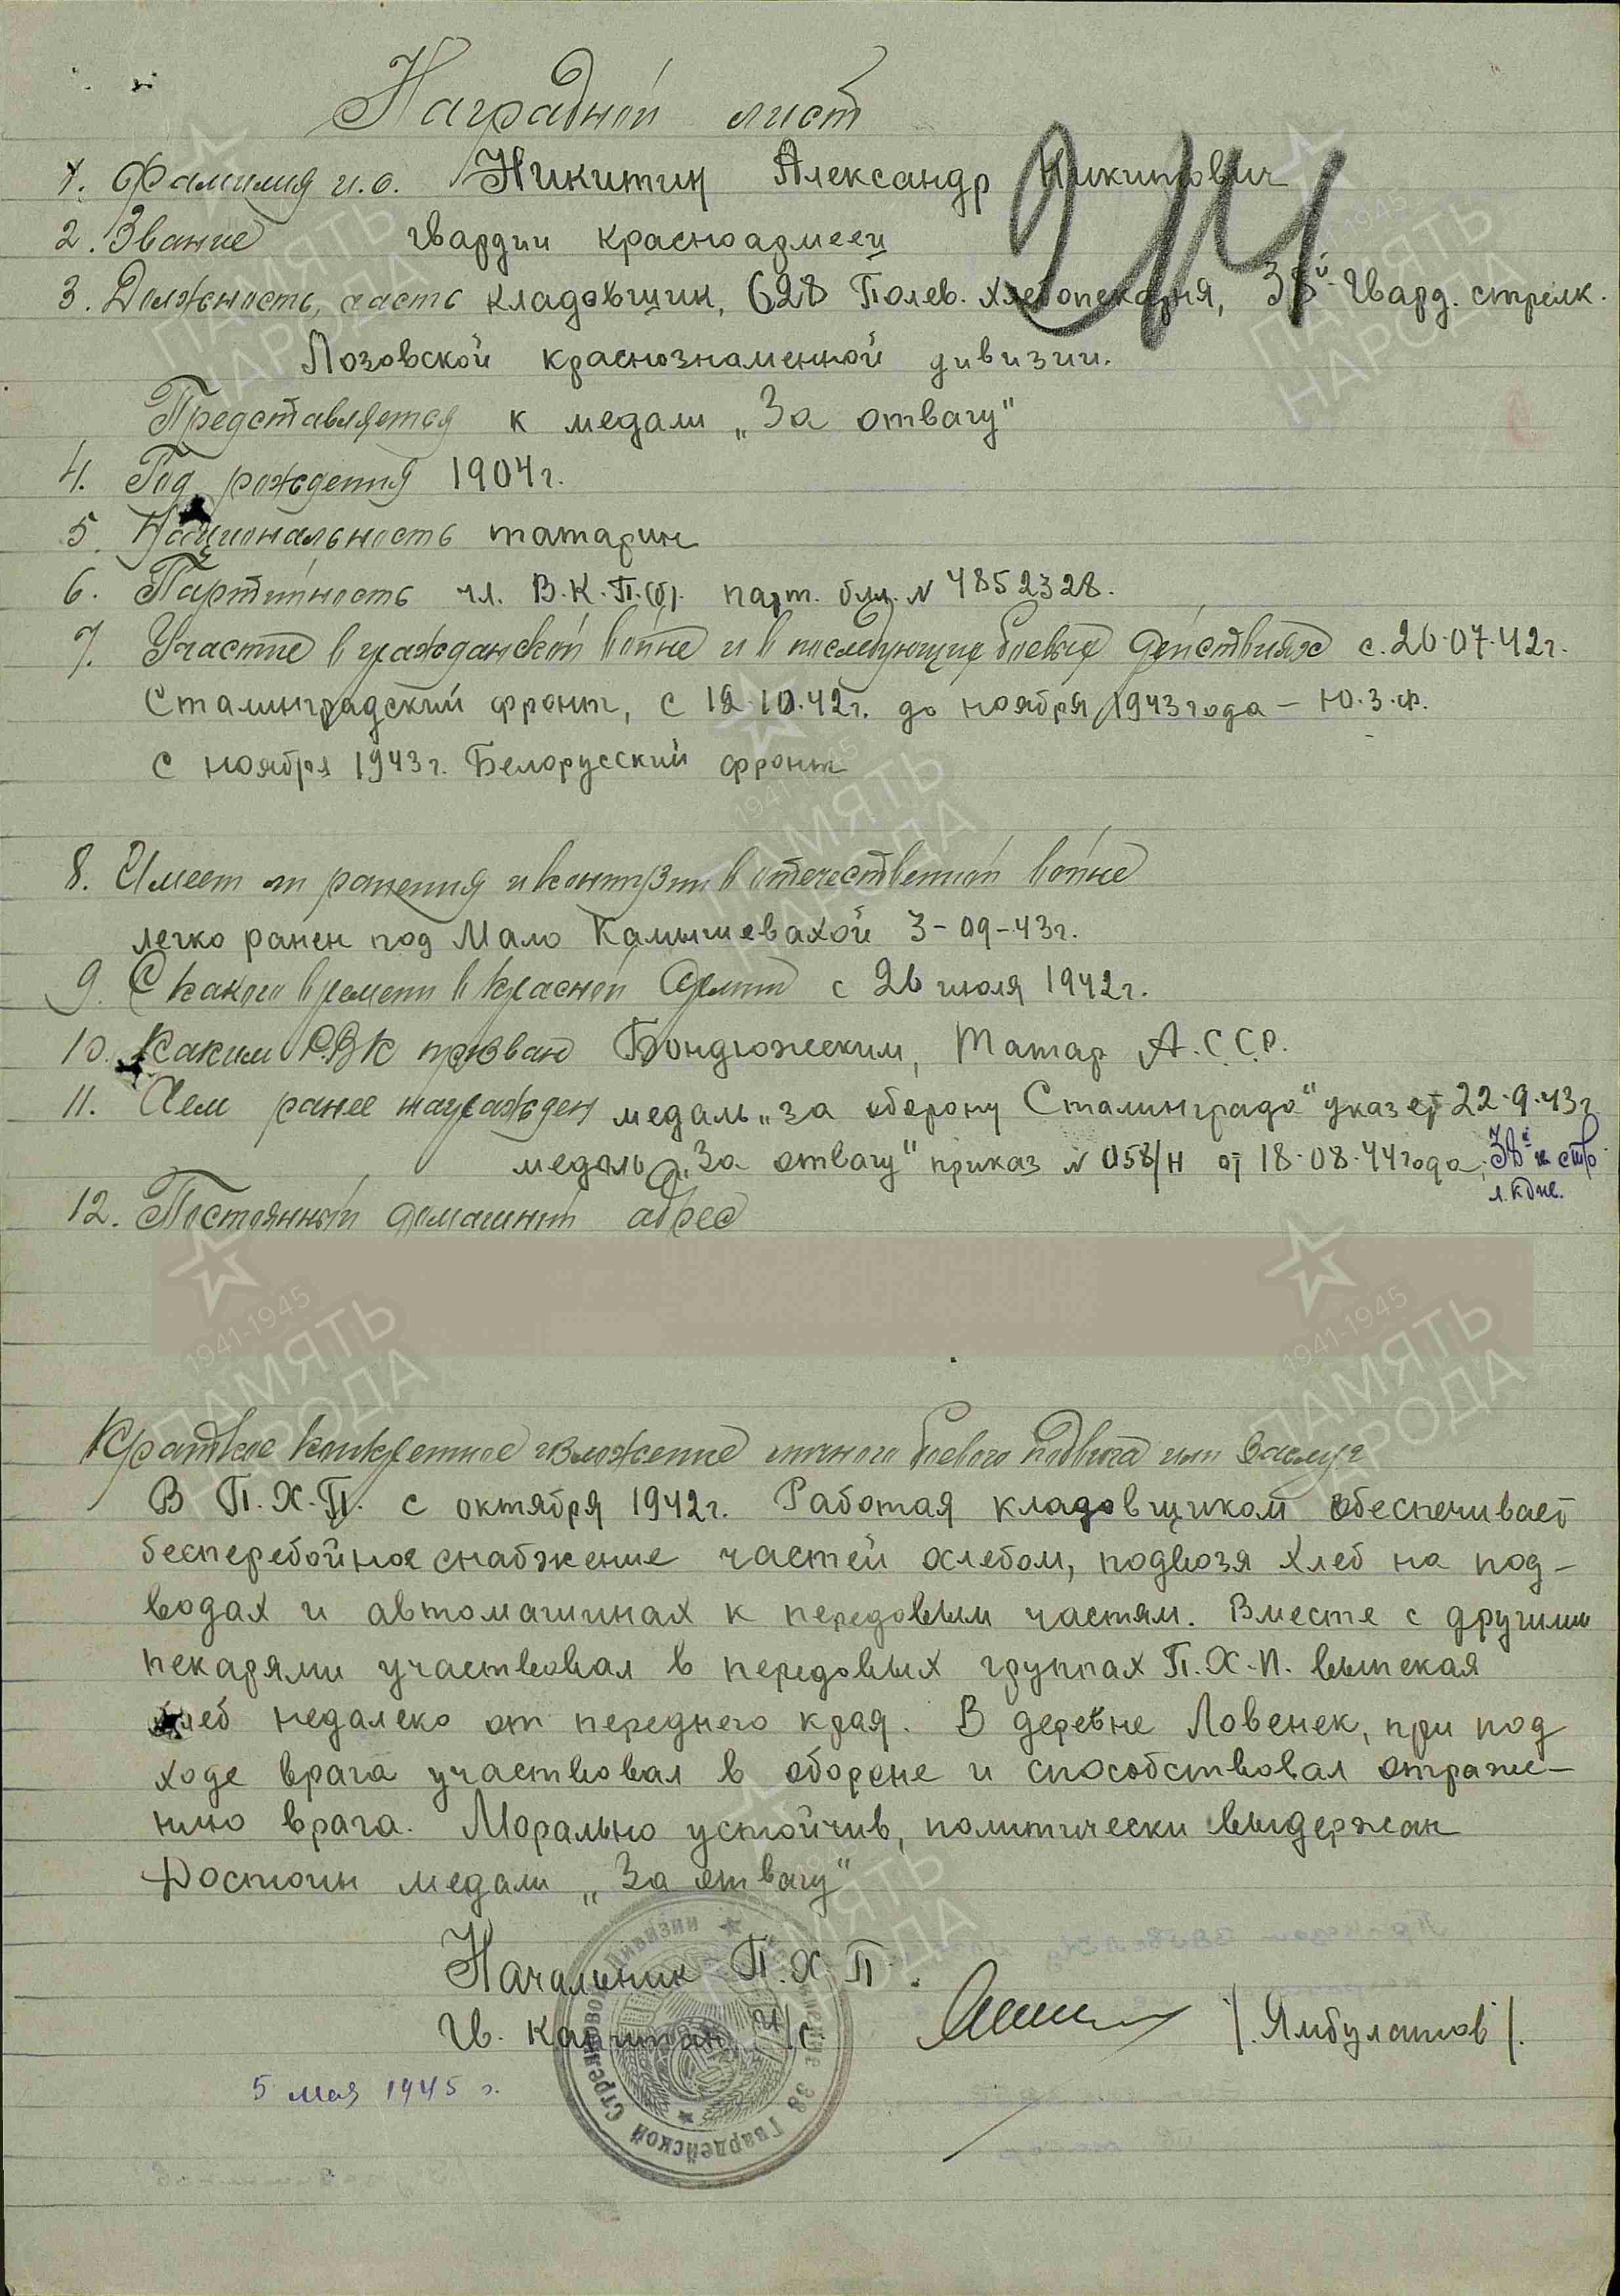 Наградной лист
1. Фамилия и.о. Никитин Александр Никитович
2. Звание гвардии красноармеец
3. Должность, часть кладовщик, 628 Полев. хлебопекарня, 38й Гвард. стрелк.
Лозовской краснознаменной дивизии.
Представляется к медали „За отвагу"
4. Год рождения 1904 г.
5. Национальность татарин
6. Партийность чл. В.К.П.(б). парт. бил. N 4852328.
7. Участие в гражданской войне и в последующих боевых действиях с. 26.07.42 г.
Сталинградский фронт, с 12.10.42 г. до ноября 1943 года – Ю.З.Ф.
с ноября 1943 г. Белорусский фронт
8. Имеет ли ранения и контузии в отечественной войне
легко ранен под Мало Камышевахой 3-09-43 г.
9. С какого времени в Красной Армии с 26 июля 1942 г.
10. Каким РВК призван Бондюжским, Татар А.С.С.Р.
11. Чем ранее награжден медаль „за оборону Сталинграда" указ от 22.9.43 г.
медаль „За отвагу" приказ N 058/н от 18.08.44 года,
12. Постоянный домашний адрес
Краткое конкретное изложение личного боевого подвига или заслуг
В П.Х.П. с октября 1942 г. Работая кладовщиком обеспечивает
бесперебойное снабжение частей хлебом, подвозя хлеб на под-
водах и автомашинах к передовым частям. Вместе с другими
пекарями участвовал в передовых группах П.Х.П. выпекая
хлеб недалеко от переднего края. В деревне Ловенек, при под
ходе врага участвовал в обороне и способствовал отраже-
нию врага. Морально устойчив, политически выдержан
Достоин медали „За отвагу"
Начальник П.Х.П.
Гв. капитан и/с /. Ямбулатов /.
5 мая 1945 г.
38 Гвардейской Стрелковой Дивизии
1941-1945
ПАМЯТЬ
НАРОДА